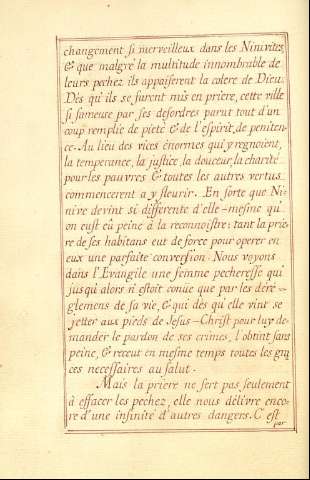 changement si merveilleux dans les Ninivites,
& que malgré la multitude innombrable de
leurs pechez ils appaiserent la colere de Dieu.
Dés qu'ils se furent mis en priere, cette ville
si fameuse par ses desordres parut tout d'un
coup remplie de pieté & de l'esprit de peniten-
ce. Au lieu des vices énormes qui y regnoient,
la temperance, la justice, la douceur, la charité
pour les pauvres & toutes les autres vertus
commencerent a y fleurir. En sorte que Ni-
nive devint si differente d'elle-mesme qu'
on eust eû peine à la reconnoistre: tant la prie-
re de ses habitans eut de force pour operer en
eux une parfaite conversion. Nous voyons
dans l'Evangile une femme pecheresse qui
jusqu'alors n'estoit conüe que par les déré-
glemens de sa vie, & qui dés qu'elle vint se
jetter aux pieds de Jesus-Christ pour luy de-
mander le pardon de ses crimes, l'obtint sans
peine, & receut en mesme temps toutes les gra
ces necessaires au salut.
Mais la priere ne sert pas seulement
à effacer les pechez, elle nous délivre enco-
re d'une infinité d'autres dangers. C'est
par